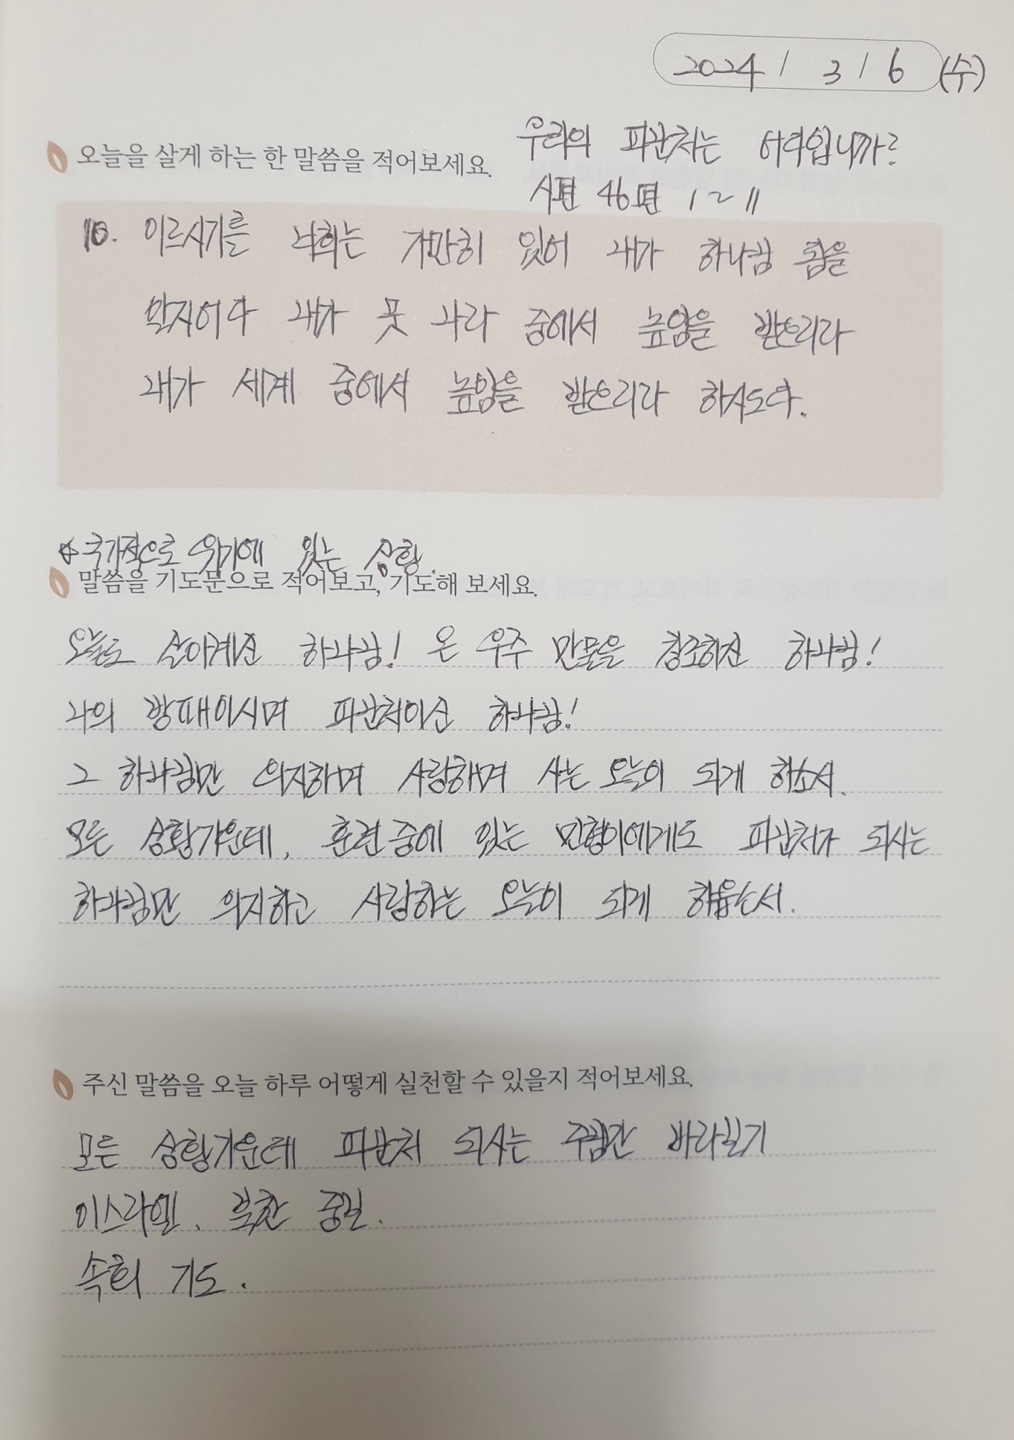 2024 / 3 / 6 (수)
우리의 피난처는 어디입니까?
오늘을 살게 하는 한 말씀을 적어보세요.
시편 46편 1~11
10. 이르시기를 너희는 가만히 있어 내가 하나님 됨을
알지어다 내가 뭇 나라 중에서 높임을 받으리라
내가 세계 중에서 높임을 받으리라 하시도다.
국가적으로 위기에 있는 상황.
말씀을 기도문으로 적어보고, 기도해 보세요.
오늘도 살아계신 하나님! 온 우주 만물을 창조하신 하나님!
나의 방패이시며 피난처이신 하나님!
그 하나님만 의지하며 사랑하며 사는 오늘이 되게 하소서.
모든 상황가운데, 훈련중에 있는 민형이에게도 피난처가 되시는
하나님만 의지하고 사랑하는 오늘이 되게 하옵소서.
주신 말씀을 오늘 하루 어떻게 실천할 수 있을지 적어보세요.
모든 상황가운데 피난처 되시는 주님만 바라보기
이스라엘, 북한
속회 기도.